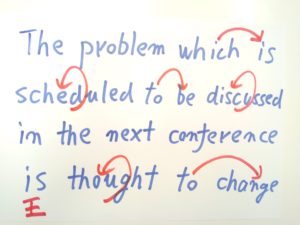 The problem which is
scheduled to be discussed
in the next conference
is thought to change